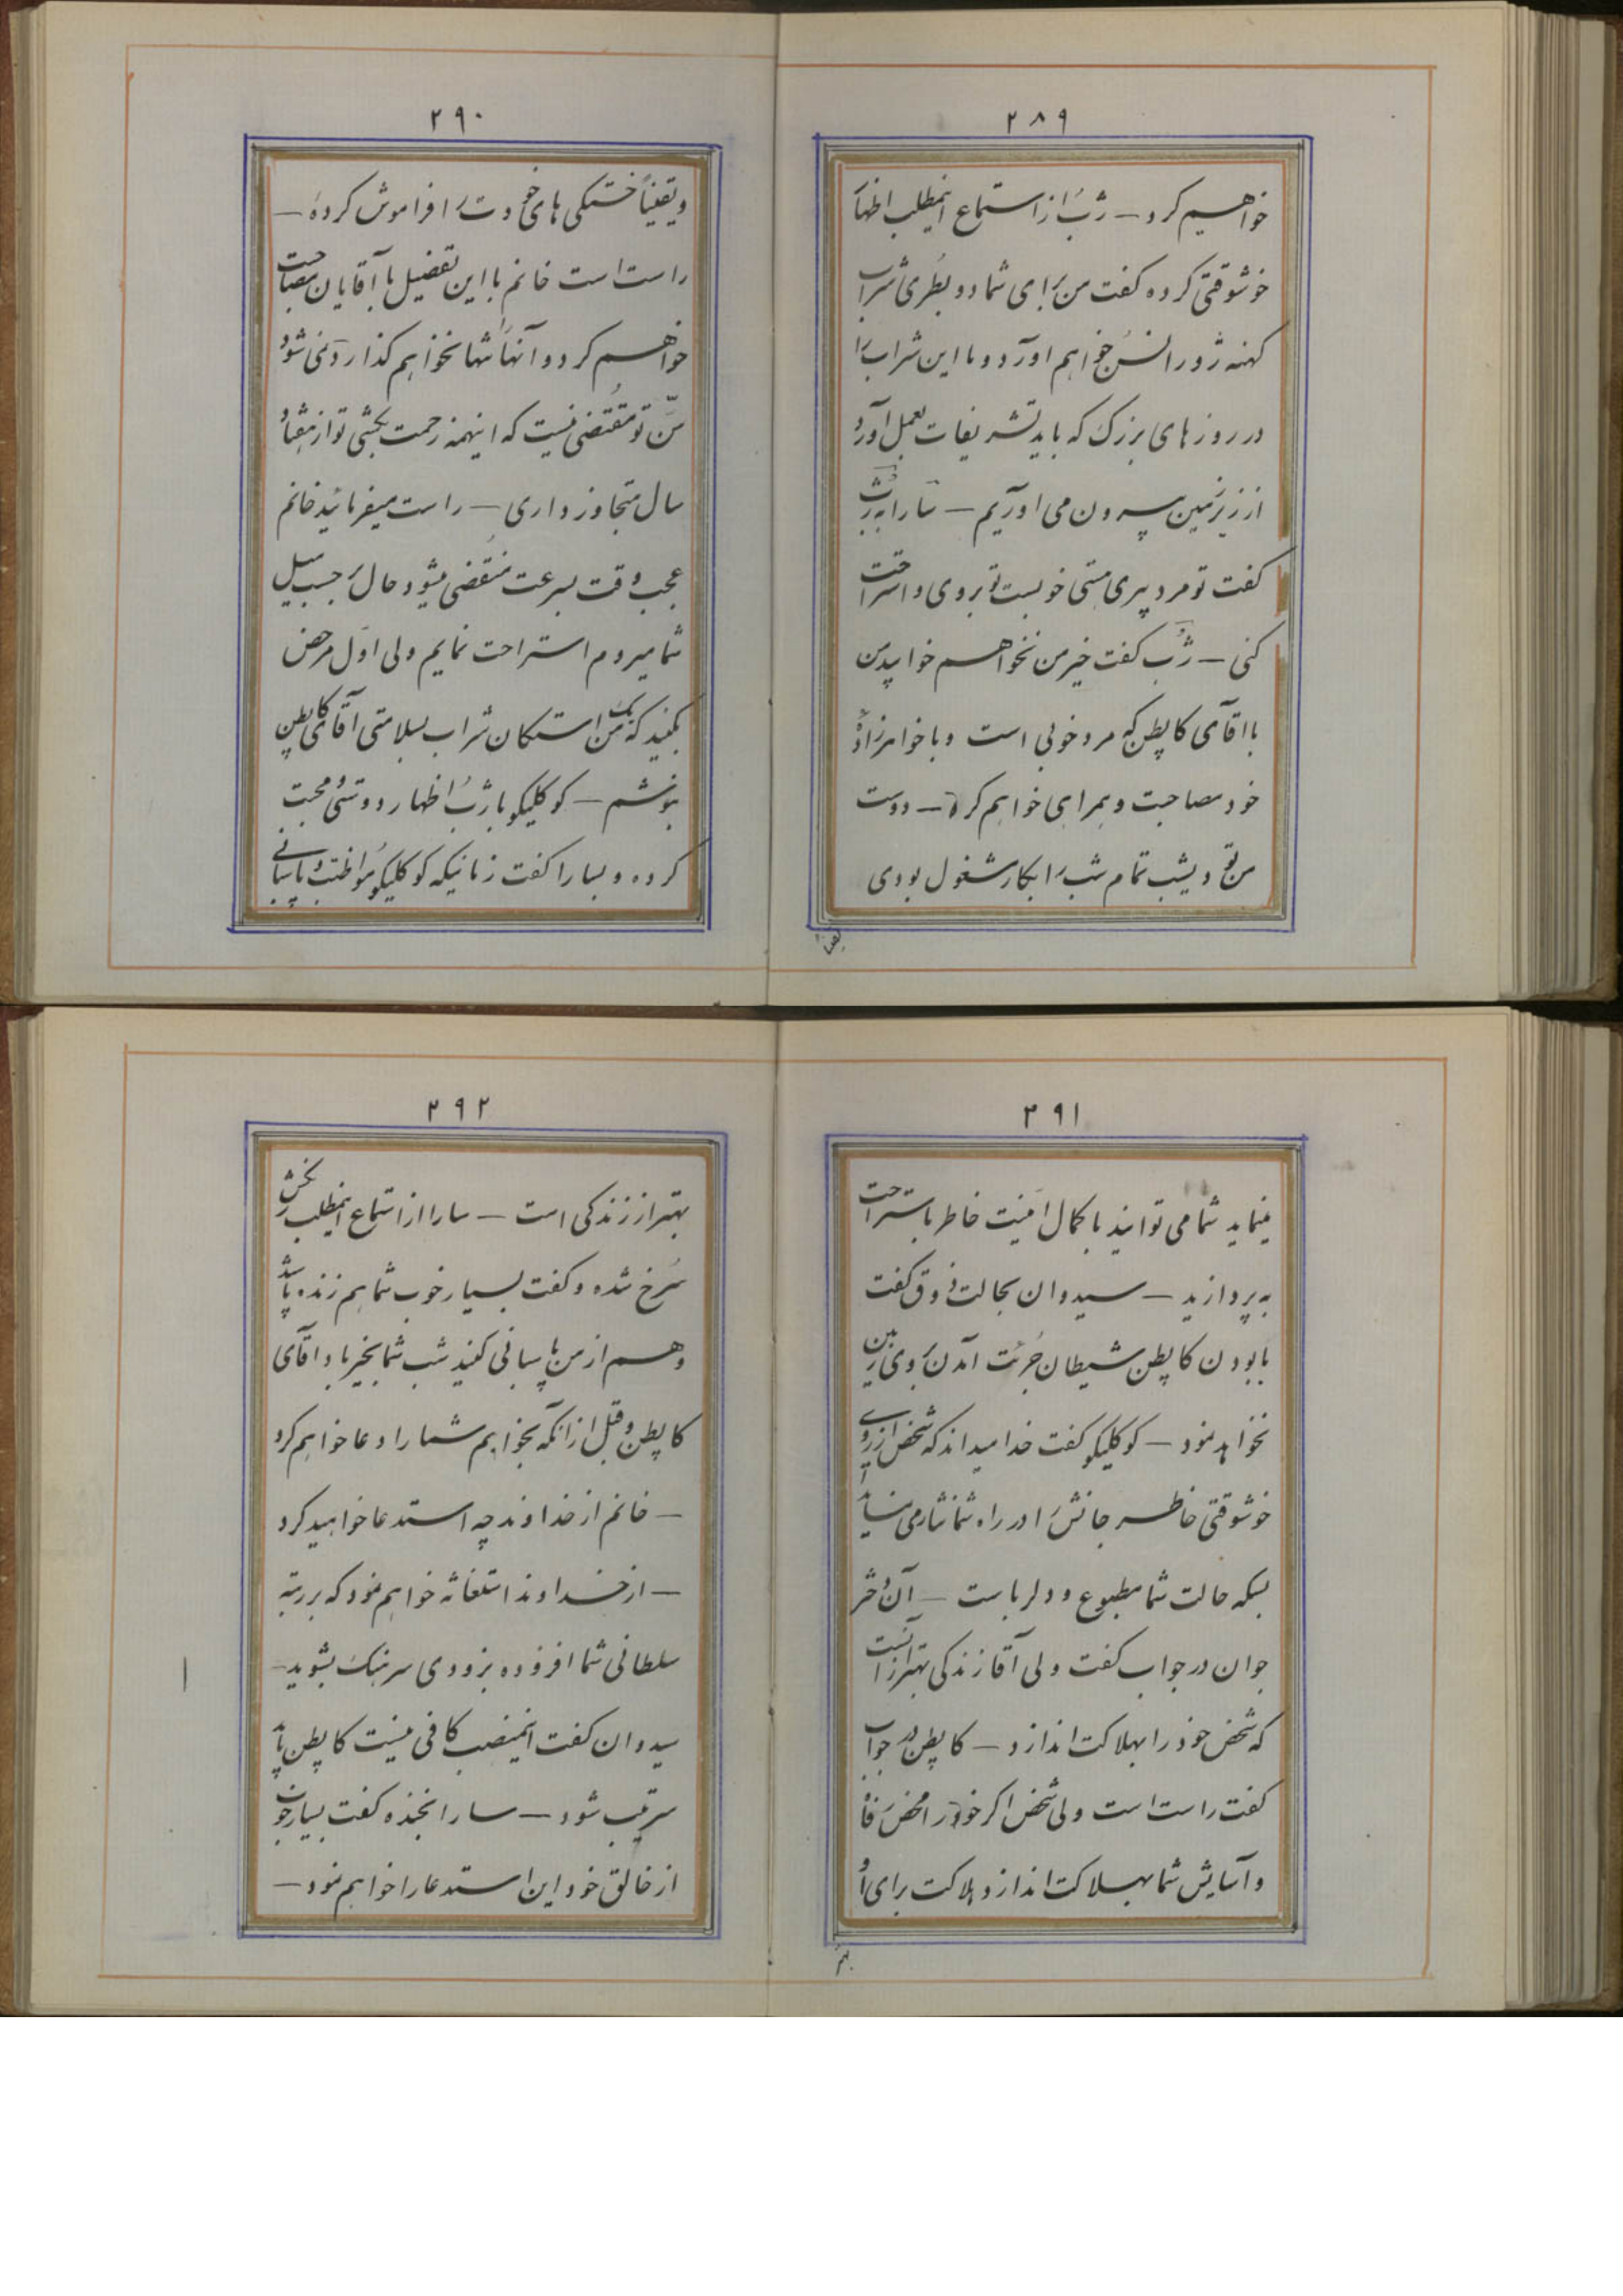 ۲۸۹
خواهیم کرد — ژب از استماع اینمطلب اظهار
خوشوقتی کرده گفت من برای شما دو بطری شراب
کهنه ژورانسن خواهم اورد و ما این شراب را
در روزهای بزرگ که باید تشریفات بعمل آورد
از زیرزمین بیرون می اوریم — سارا به ژب
گفت تو مرد پیری هستی خوبست تو بروی و استراحت
کنی — ژب گفت خیر من نخواهم خوابید من
با اقای کاپطن که مرد خوبی است و با خواهرزادهٔ
خود مصاحبت و همراهی خواهم کرد — دوست
من تو دیشب تمام شب را بکار مشغول بودی
یقیناً
۲۹۰
و یقیناً خستگی های خودت را فراموش کردهٔ —
راست است خانم با این تفصیل با آقایان مصاحبت
خواهم کرد و آنها را تنها نخواهم گذارد — نمی شود
سنّ تو مقتضی نیست که اینهمه زحمت بکشی تو از هفتاد
سال متجاوز داری — راست میفرمائید خانم
عجب وقت بسرعت منقضی میشود حال بر حسب میل
شما میروم استراحت نمایم ولی اوّل مرخص
بکنید که من یک استکان شراب بسلامتی اقای کاپطن
بنوشم — کوکلیکو با ژب اظهار دوستی و محبت
کرده و بسارا گفت زمانیکه کوکلیکو مواظبت و پاسبانی
۲۹۱
مینماید شما می توانید با کمال امنیت خاطر باستراحت
به پردازید — سیدوان بحالت ذوق گفت
با بودن کاپطن شیطان جرئت آمدن بروی زمین
نخواهد نمود — کوکلیکو گفت خدا میداند که شخص از روی
خوشوقتی خاطر جانش را در راه شما نثار می نماید
بسکه حالت شما مطبوع و دلرباست — آن دختر
جوان در جواب گفت ولی آقا زندگی بهتر از انست
که شخص خود را بهلاکت اندازد — کاپطن در جواب
گفت راست است ولی شخص اگر خود را محض رفاه
و آسایش شما بهلاکت اندازد هلاکت برای او
بهتر
۲۹۲
بهتر از زندگی است — سارا از استماع اینمطلب رخش
سرخ شده و گفت بسیار خوب شما هم زنده باشید
و هم از من پاسبانی کنید شب شما بخیر باد اقای
کاپطن و قبل از انکه بخوابم شما را دعا خواهم کرد
— خانم از خداوند چه استدعا خواهید کرد
— از خداوند استغاثه خواهم نمود که بر رتبه
سلطانی شما افزوده بزودی سرهنگ بشوید —
سیدوان گفت اینمنصب کافی نیست کاپطن باید
سرتیب شود — سارا بخنده گفت بسیار خوب
از خالق خود این استدعا را خواهم نمود —